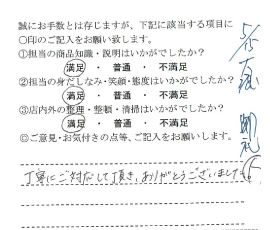 誠にお手数とは存じますが、下記に該当する項目に
〇印のご記入をお願い致します。
①担当の商品知識・説明はいかがでしたか?
満足 ・ 普通 ・ 不満足
②担当の身だしなみ・笑顔・態度はいかがでしたか?
満足 ・ 普通 ・ 不満足
③店内外の整理・整頓・清掃はいかがでしたか?
満足 ・ 普通 ・ 不満足
◎ご意見・お気付きの点等、ご記入をお願いします。
丁寧にご対応して頂き、ありがとうございました
5/5